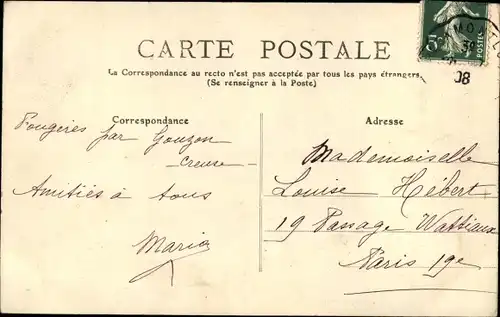 CARTE POSTALE
La Correspondance au recto n'est pas acceptée par tous les pays étrangers
(Se renseigner à la Poste)
Correspondance
Fougères par Gouzon
Creuse
Amitiés à tous
Maria
Adresse
Mademoiselle
Louise Hébert
19 Passage Wattiaux
Paris 19e
5c
POSTES
08